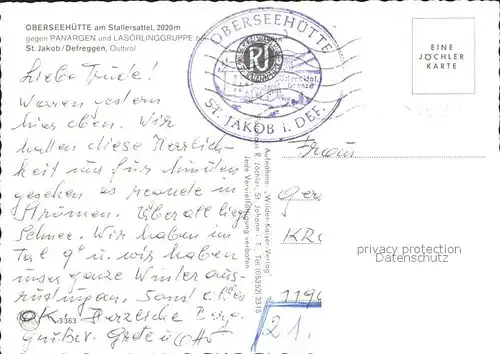 OBERSEEHÜTTE am Stallersattel, 2020m
gegen PANARGEN und LASÖRLINGGRUPPE
St. Jakob/Defreggen, Osttirol
OBERSEEHÜTTE
RJ
ST. JAKOB i. DEF.
EINE
JÖCHLER
KARTE
Liebe Trude!
Waren gestern
hier oben. Wir
hatten diese Herrlich-
keit nur fünf Minuten
gesehen es regnete in
Strömen. Überall liegt
Schnee. Wir haben im
Tal 9° u. wir haben
unser ganze Winteraus-
rüstung an. Sonst alles
OK. Herzliche Berg-
grüße Grete u Otto
3363
Aufnahme: "Wilder-Kaiser-Verlag"
R. Jöchler, St. Johann i. T., Tel. (05352) 2315
Jede Vervielfältigung verboten
Frau
Ger
KR
1190
21.
privacy protection
Datenschutz